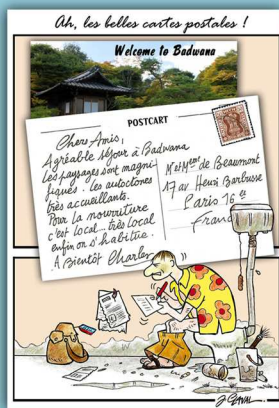 Ah, les belles cartes postales !
Welcome to Badwana
POSTCART
Chers Amis,
Agréable séjour à Badwana
Les paysages sont magni-
fiques. les autoctones
très accueillants.
Pour la nourriture
c'est local.. très local
enfin on s'habitue.
A Bientôt Charles
M et Mme de Beaumont
17 av Henri Barbusse
Paris 16 e
Franc